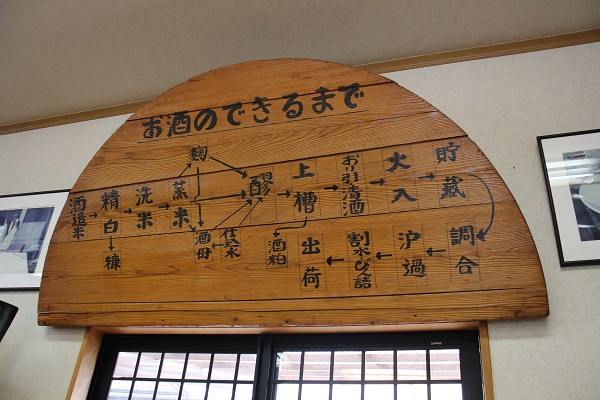 お酒のできるまで
酒造米
精白
糠
洗米
蒸米
麹
酒母
仕込米
醪
上槽
酒粕
おり引清酒
火入
貯蔵
調合
沪過
割水びん詰
出荷